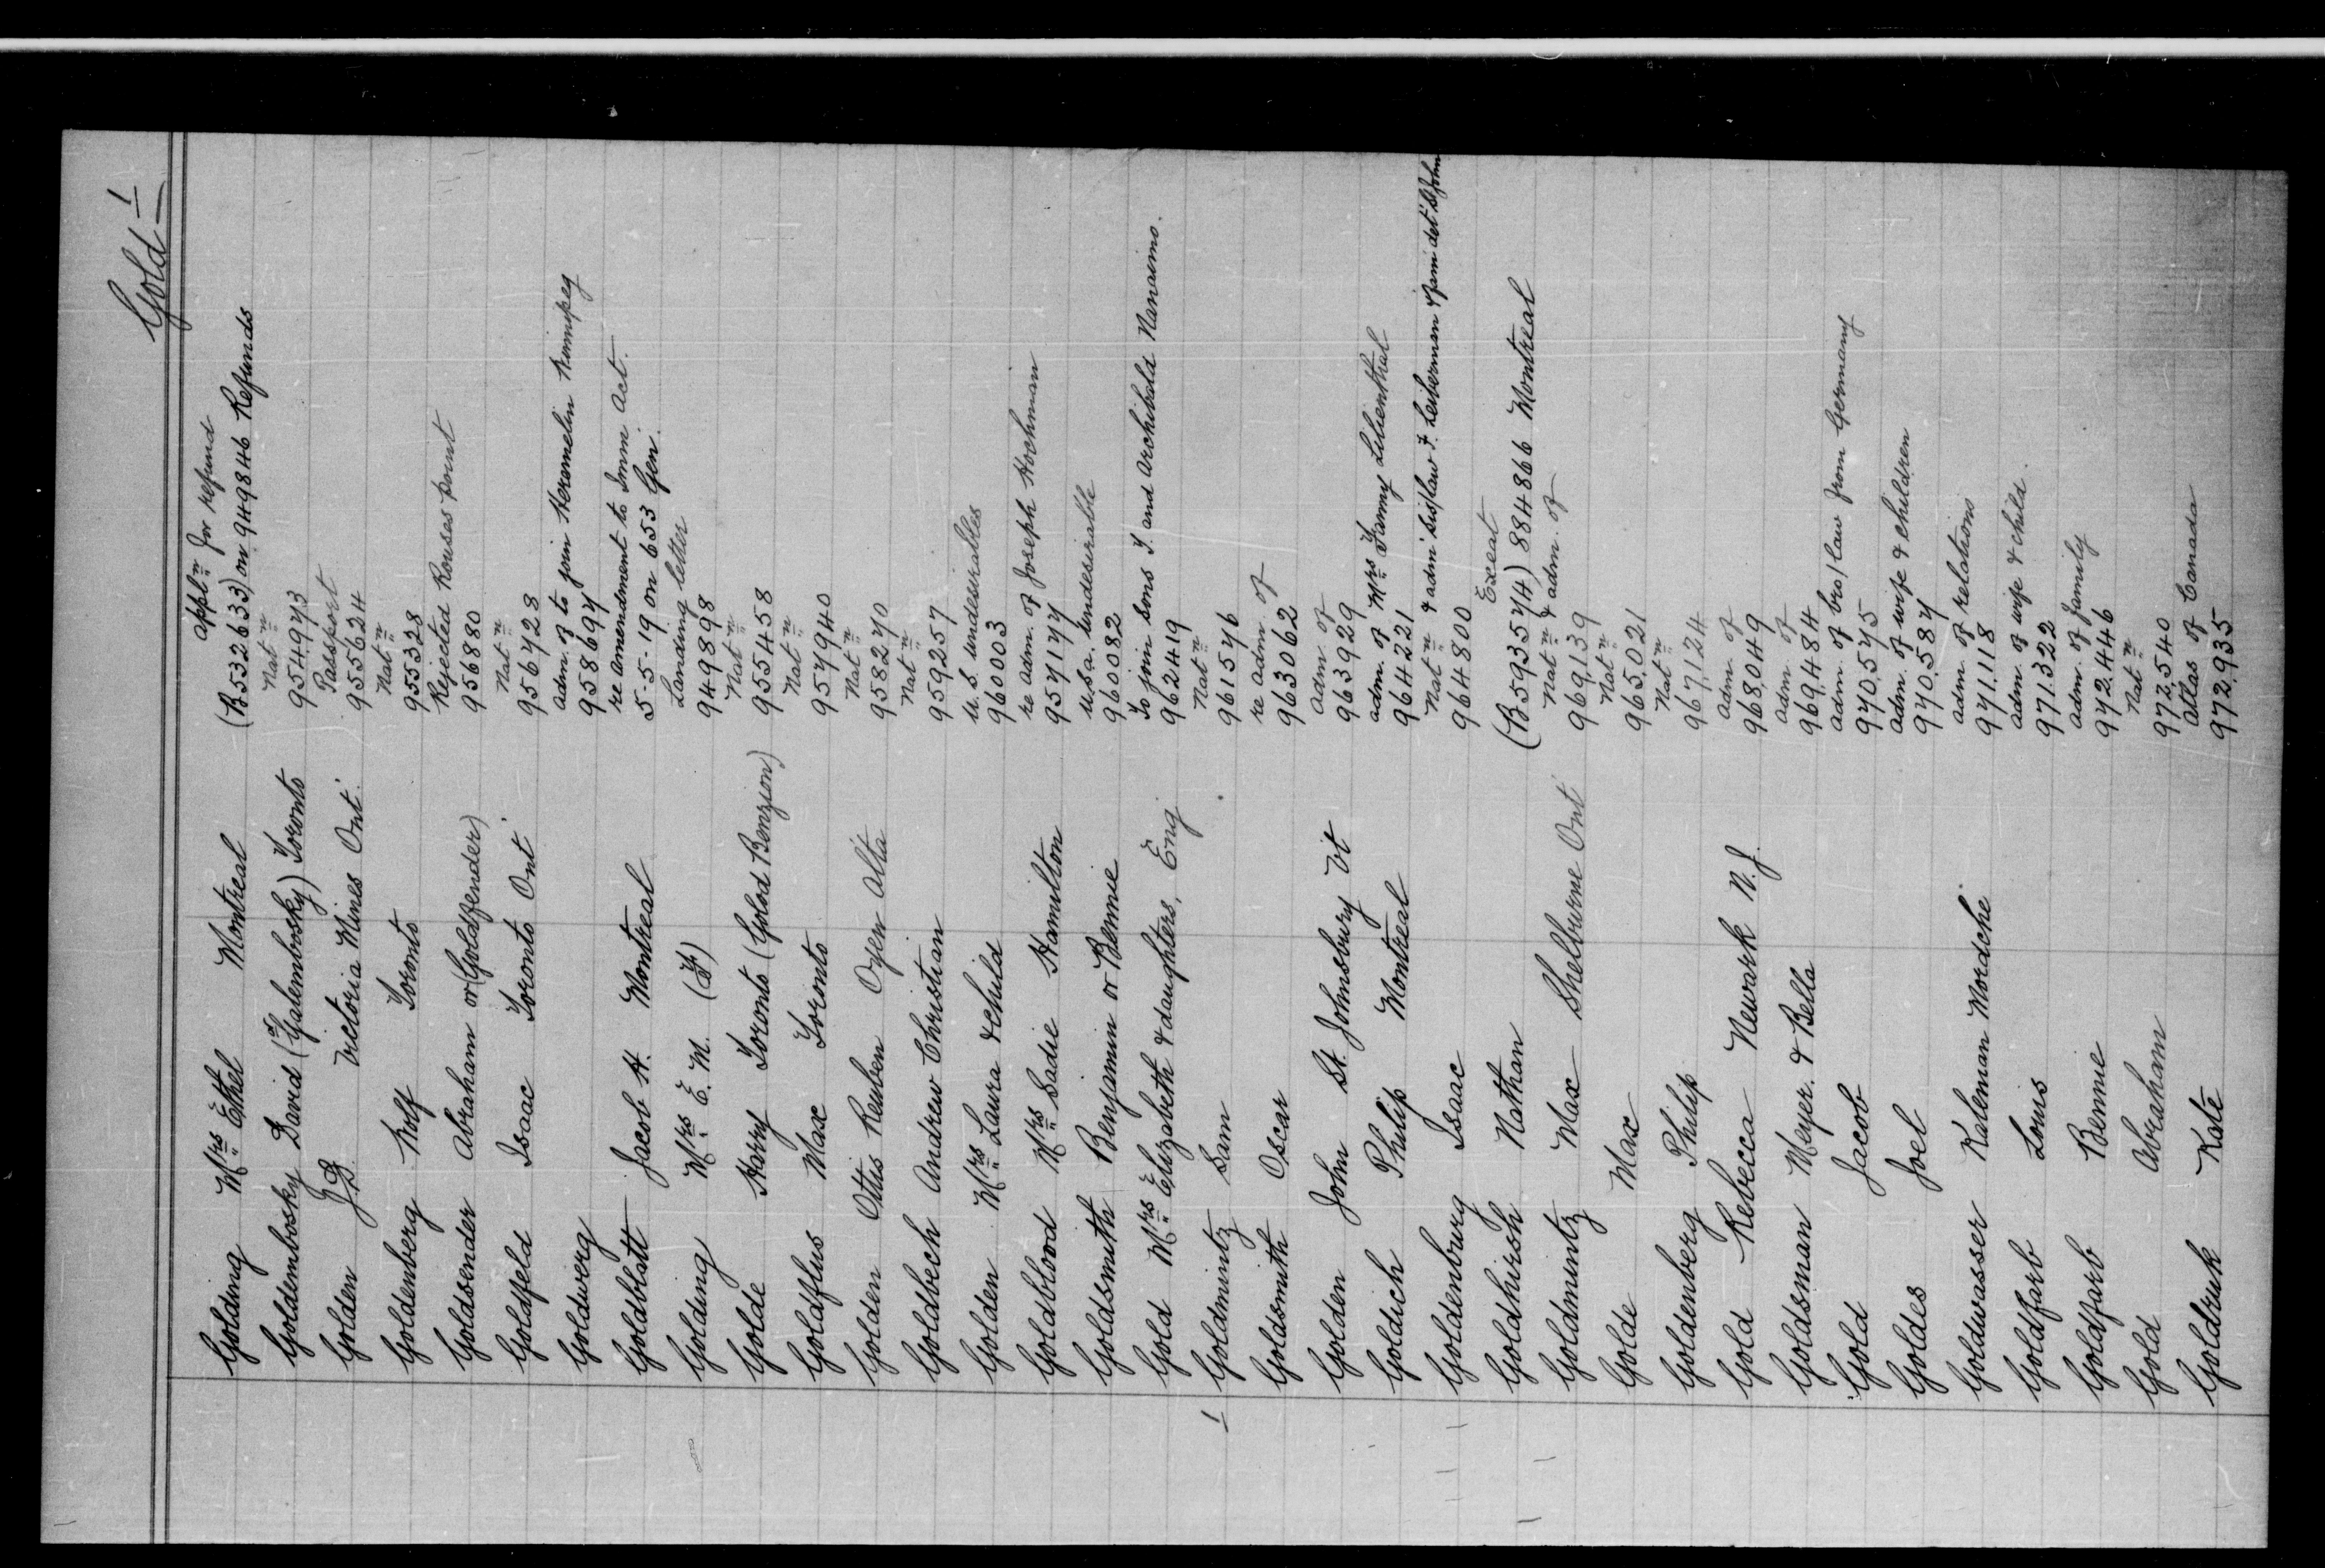 Gold 1
Golding Mrs Ethel Montreal Appln for refund (B532633) on 949846 Refunds
Goldembosky David (Galembosky) Toronto Natn 954973
Golden J.B. Victoria Mines Ont. Passport 955624
Goldenberg Rolf Toronto Natn 955328
Goldsender Abraham or (Goldfender) Rejected Rouses point 956880
Goldfeld Isaac Toronto Ont Natn 956728
Goldwerg adm. of to join Heremelin Winnipeg 958697
Goldblatt Jacob H. Montreal re amendment to Imm Act. 5-5-19 on 653 Gen.
Golding Mrs E. M. Landing letter 949898
Golde Harry Toronto (Golod Benzion) Natn 955458
Goldflus Max Toronto Natn 957940
Golden Ottis Reuben Oyen Alta Natn 958270
Goldbech Andrew Christian Natn 959257
Golden Mrs Laura & child U.S undesirables 960003
Goldblood Mrs Sadie Hamilton re adm. of Joseph Hochman 957177
Goldsmith Benjamin or Bennie U.S.a. undesirable 960082
Gold Mrs Elizabeth & daughters, Eng To join sons T. and Archibald Nanaimo. 962419
1 Goldmintz Sam Natn 961576
Goldsmith Oscar re adm. of 963062
Golden John St. Johnsbury Vt adm. of 963929
Goldich Philip Montreal adm. of Mrs Fanny Lilienthal 964221
Goldenburg Isaac Natn & adm sis/law F. Leiberman & fam det St John 964800
Goldhirsh Nathan Exeat (B593574) 884866 Montreal
Goldmintz Max Shelburne Ont Natn & adm. of 969139
Golde Max Natn 965,021
Goldenberg Philip Natn 967,124
Gold Rebecca Newark N.J. adm. of 968,049
Goldsman Meyer. & Bella adm. of 969,484
Gold Jacob adm. of bro/law from Germany 970,575
Goldes Joel adm. of wife & children 970,587
Goldwasser Kalman Mordche adm. of relations 971,118
Goldfarb Louis adm. of wife & child. 971,322
Goldfarb Bennie adm. of family 972,446
Gold Abraham Natn 972,540
Goldruk Kate Atlas of Canada 972,935